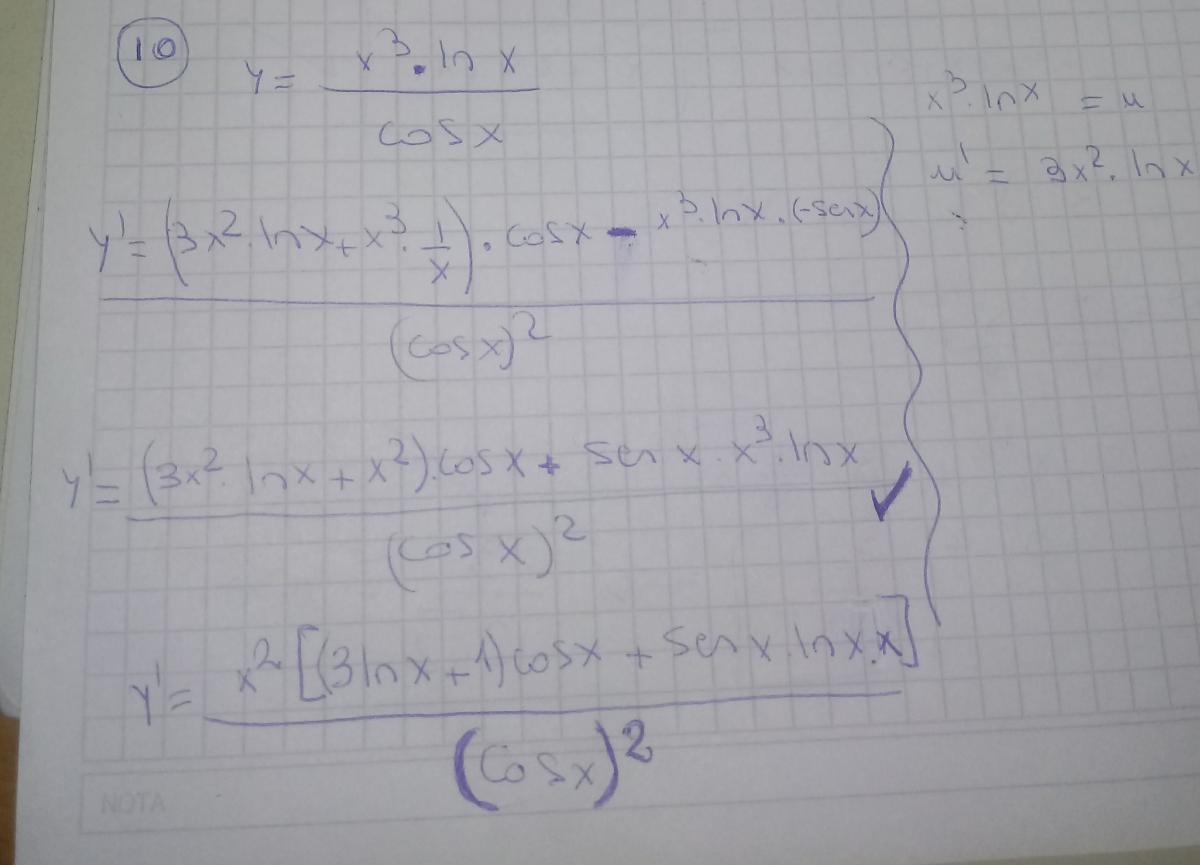 10
y = x³ · ln x / cos x
y' = (3x² · ln x + x³ · 1/x) · cos x - x³ · ln x · (-sen x) / (cos x)²
y' = (3x² · ln x + x²) · cos x + sen x · x³ · ln x / (cos x)² ✓
y' = x² [(3 ln x + 1) cos x + sen x · ln x · x] / (cos x)²
x³ · ln x = u
u' = 3x² · ln x
NOTA